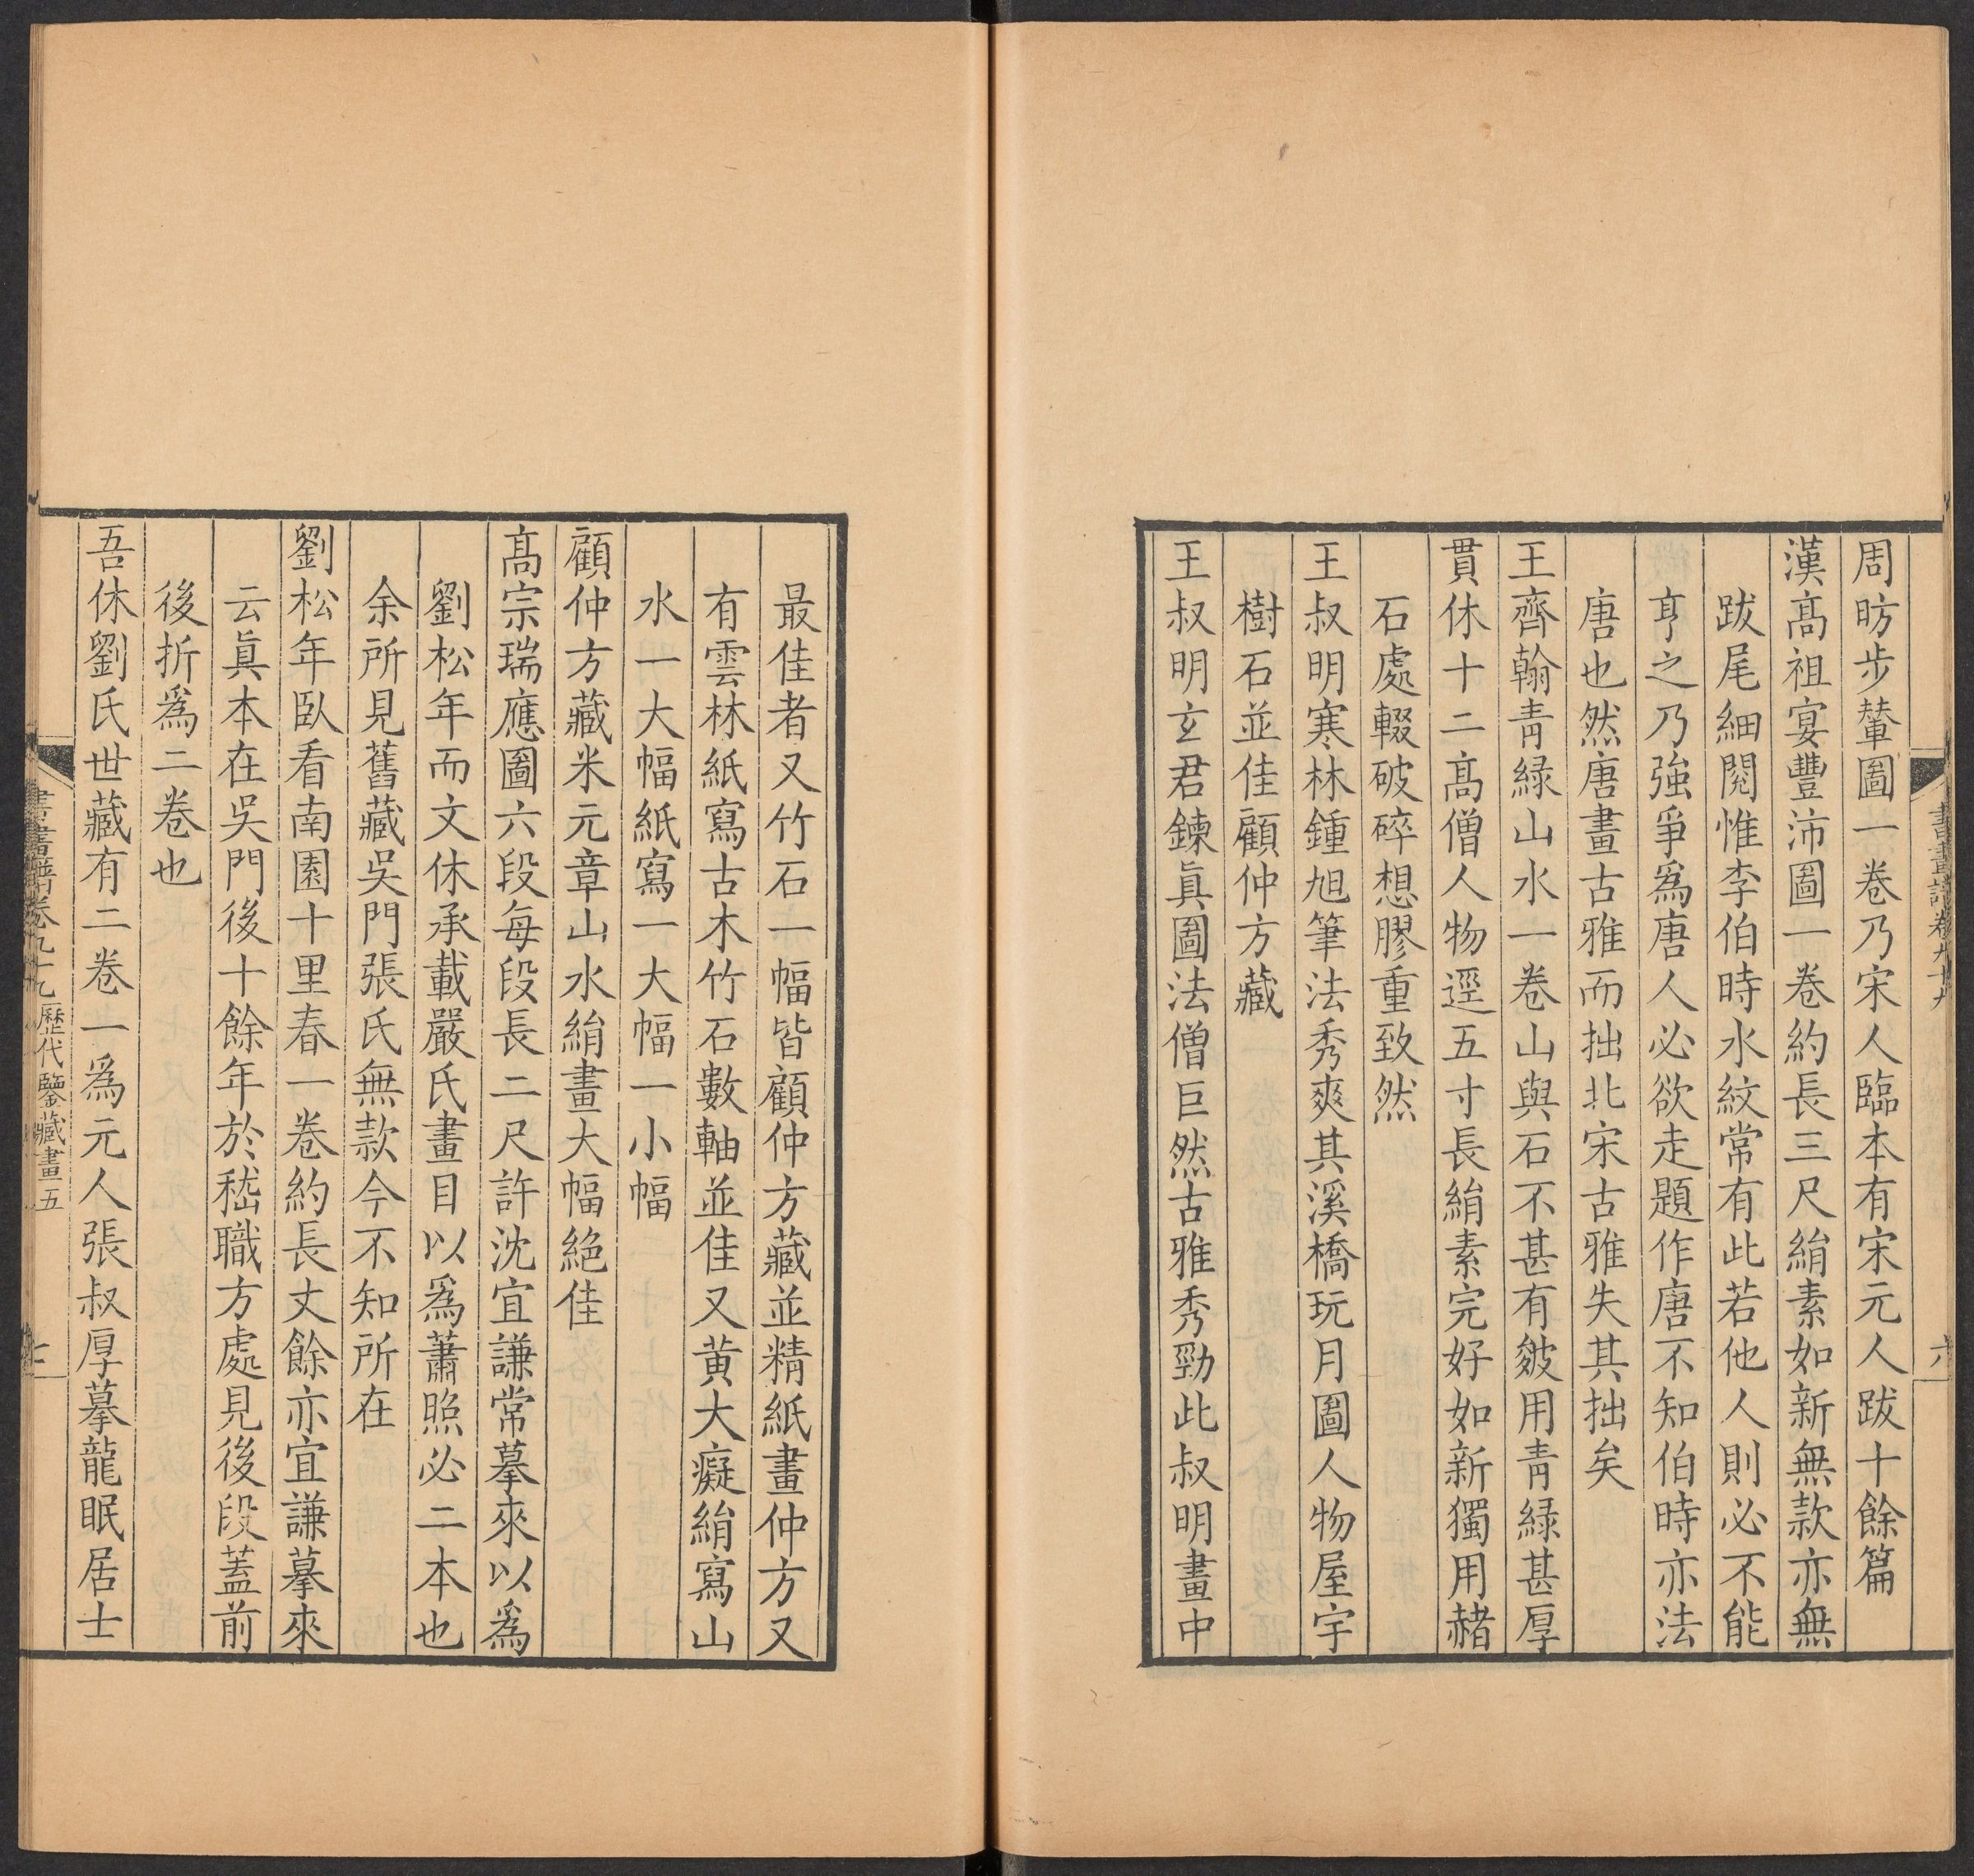 周昉步輦圖一卷乃宋人臨本有宋元人跋十餘篇
漢高祖宴豐沛圖一卷約長三尺絹素如新無款亦無
跋尾細閱惟李伯時水紋常有此若他人則必不能
亨之乃強爭為唐人必欲走題作唐不知伯時亦法
唐也然唐畫古雅而拙北宋古雅失其拙矣
王齊翰青緑山水一卷山與石不甚有皴用青緑甚厚
貫休十二高僧人物逕五寸長絹素完好如新獨用赭
石處輟破碎想膠重致然
王叔明寒林鍾旭筆法秀爽其溪橋玩月圖人物屋宇
樹石並佳顧仲方藏
王叔明玄君鍊眞圖法僧巨然古雅秀勁此叔明畫中
書畫譜卷九十九
六
最佳者又竹石一幅皆顧仲方藏並精紙畫仲方又
有雲林紙寫古木竹石數軸並佳又黄大癡絹寫山
水一大幅紙寫一大幅一小幅
顧仲方藏米元章山水絹畫大幅絕佳
高宗瑞應圖六段每段長二尺許沈宜謙常摹來以為
劉松年而文休承載嚴氏畫目以為蕭照必二本也
余所見舊藏吳門張氏無款今不知所在
劉松年臥看南園十里春一卷約長丈餘亦宜謙摹來
云眞本在吳門後十餘年於嵇職方處見後段蓋前
後折為二卷也
吾休劉氏世藏有二卷一為元人張叔厚摹龍眠居士
書畫譜卷九十九 歷代鑒藏畫五
七